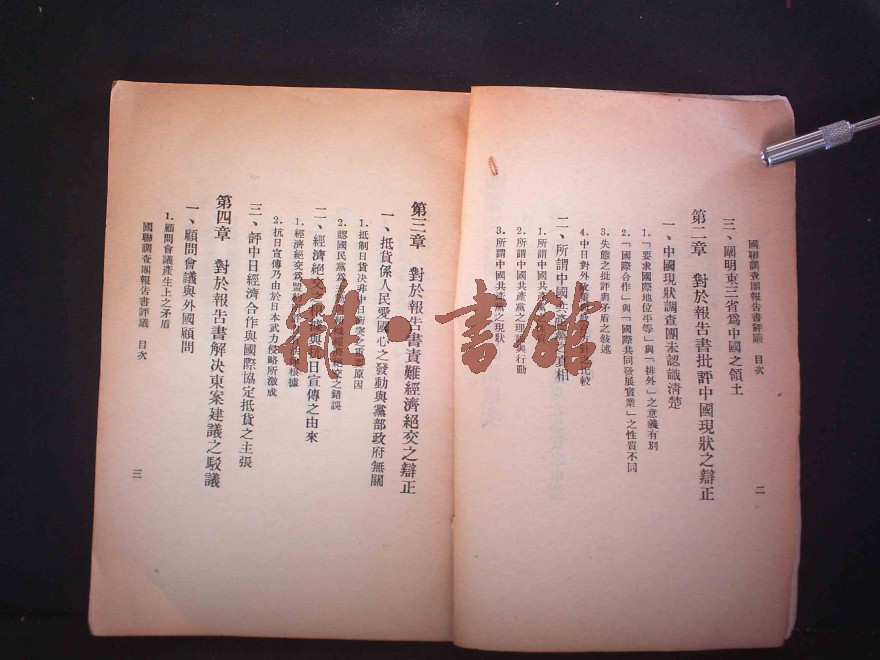 國聯調查團報告書評議　目次
三、闡明東三省爲中國之領土
第二章　對於報告書批評中國現狀之辯正
一、中國現狀調查團未認識清楚
1.「要求國際地位平等」與「排外」之意義有別
2.「國際合作」與「國際共同發展實業」之性質不同
3.失態之批評與矛盾之敍述
4.中日對外政策與宣言 比較
二、所謂中國共產黨之真相
1.所謂中國共產黨之性質
2.所謂中國共產黨之理論與行動
3.所謂中國共產黨之現狀
二
第三章　對於報告書責難經濟絕交之辯正
一、抵貨係人民愛國心之發動與黨部政府無關
1.抵制日貨決非中日衝突之重要原因
2.認國民黨爲 經濟絕交之錯誤
二、經濟絕交之根據與抗日宣傳之由來
1.經濟絕交爲盟約 根據
2.抗日宣傳乃由於日本武力侵略所激成
三、評中日經濟合作與國際協定抵貨之主張
第四章　對於報告書解決東案建議之駁議
一、顧問會議與外國顧問
1.顧問會議產生上之矛盾
國聯調查團報告書評議　目次
三
雜·書館